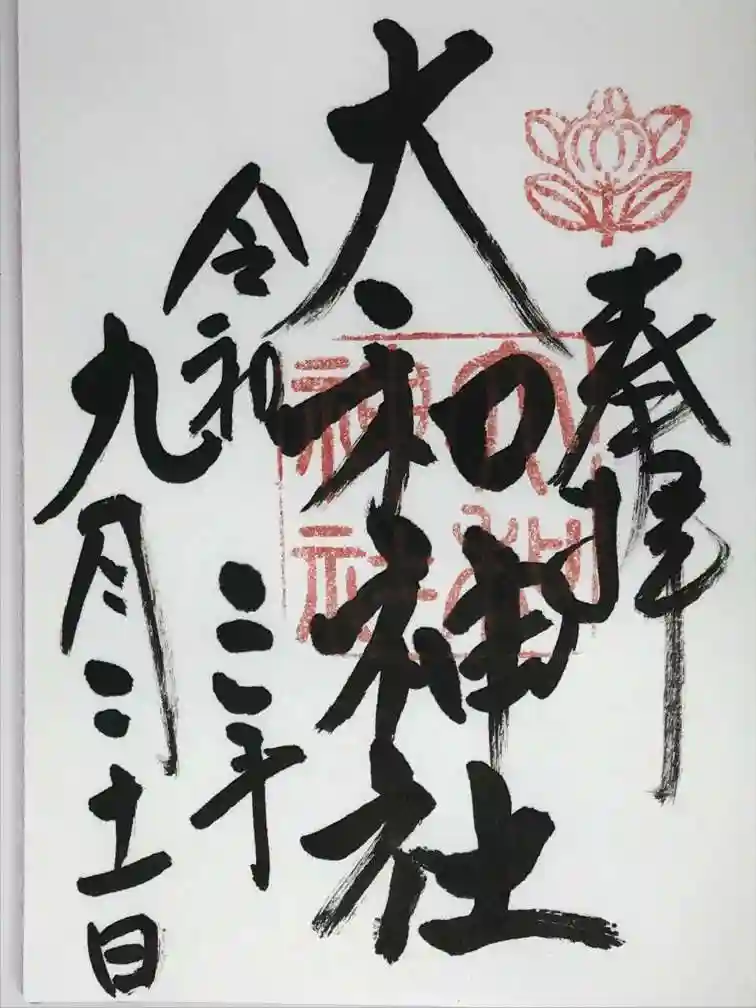 奉拝
大和神社
令和三年
九月二十一日
大和
神社